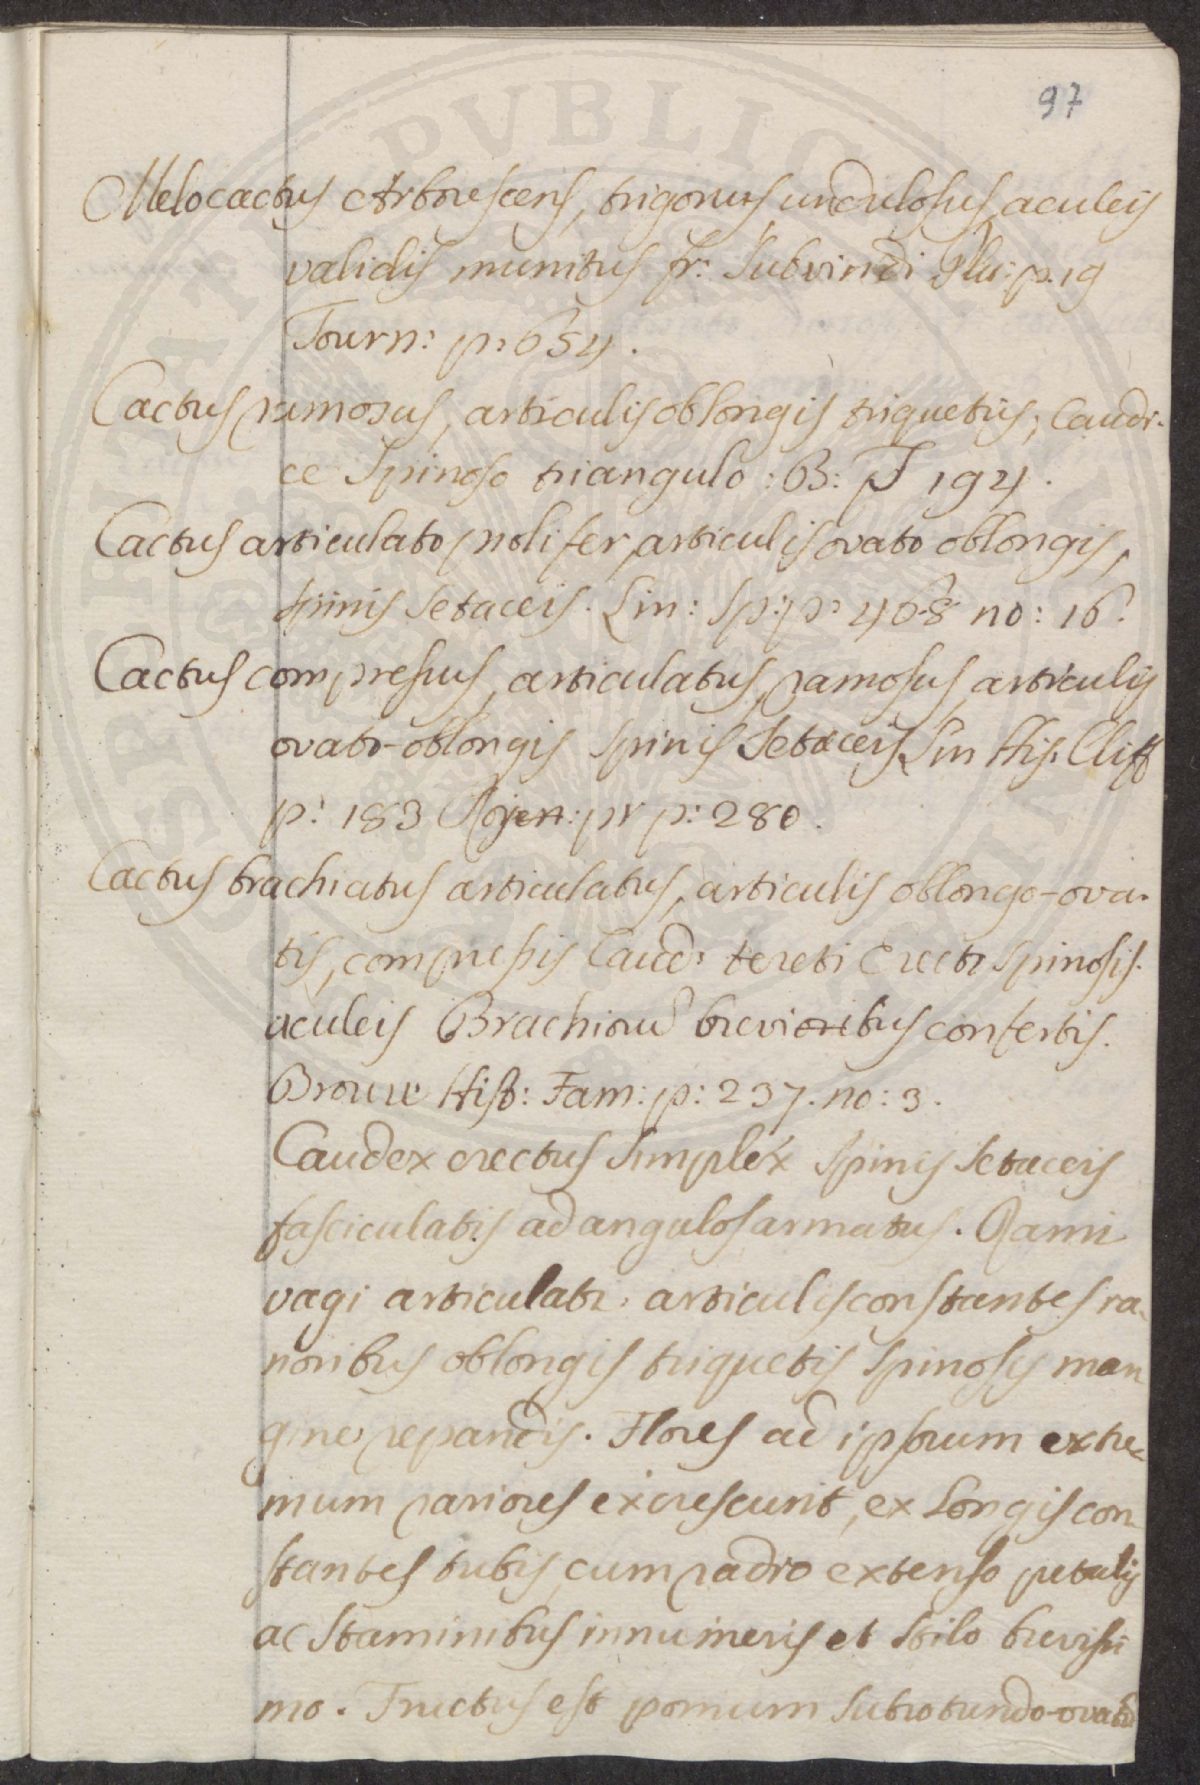 97
Melocactus Arborescens, trigonus undulosus, aculeis
validis munitus fr: Subviridi Plu: p. 19
Tourn: p: 654.
Cactus ramosus, articulis oblongis triquetris; Caudi-
ce Spinoso triangulo: B: J 194.
Cactus articulato prolifer articulis ovato oblongis,
spinis Setaceis. Lin: Sp: p: 468 no: 16.
Cactus compressus, articulatus, ramosus, articulis
ovato-oblongis Spinis Setaceis Lin His. Cliff
p: 183 Rojen: pr p: 280.
Cactus brachiatus articulatus, articulis oblongo-ova-
tis, compressis Caud: tereti Erecto Spinosis.
aculeis Brachiorum brevioribus confertis.
Browne Hist: Jam: p: 237. no: 3.
Caudex erectus Simplex Spinis Setaceis
fasciculatis ad angulos armatus. Rami
vagi articulati, articulis constantes ra-
rioribus oblongis triquetis Spinosis mar
gine repandis. Flores ad ipsorum extre-
mum rariores excrescunt, ex Longis con-
stantes tubis cum radio extenso petalis
ac Staminibus innumeris et Stilo brevissi
mo. Fructus est pomum Subrotundo-ovatum